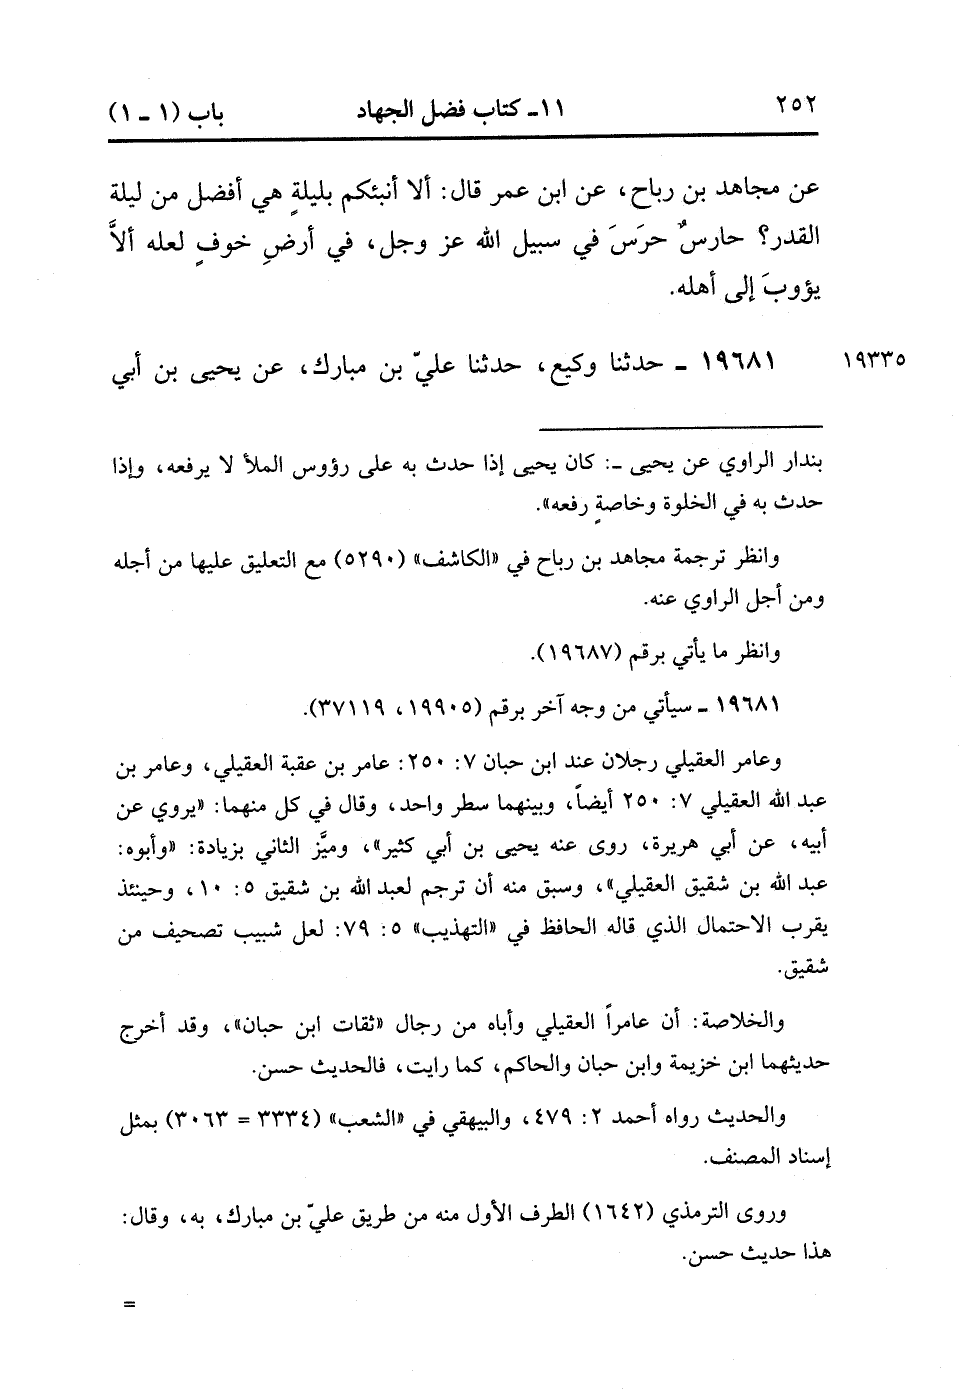 ٢٥٢ ١١ـ كتاب فضل الجهاد باب (١ ـ ١)
عن مجاهد بن رباح، عن ابن عمر قال: ألا أنبئكم بليلةٍ هي أفضل من ليلة
القدر؟ حارسٌ حرَسَ في سبيل الله عز وجل، في أرضِ خوفٍ لعله ألاَّ
يؤوبَ إلى أهله.
١٩٣٣٥ ١٩٦٨١ ـ حدثنا وكيع، حدثنا عليّ بن مبارك، عن يحيى بن أبي
بندار الراوي عن يحيى ـ: كان يحيى إذا حدث به على رؤوس الملأ لا يرفعه، وإذا
حدث به في الخلوة وخاصةٍ رفعه».
وانظر ترجمة مجاهد بن رباح في «الكاشف» (٥٢٩٠) مع التعليق عليها من أجله
ومن أجل الراوي عنه.
وانظر ما يأتي برقم (١٩٦٨٧).
١٩٦٨١ ـ سيأتي من وجه آخر برقم (١٩٩٠٥، ٣٧١١٩).
وعامر العقيلي رجلان عند ابن حبان ٧: ٢٥٠: عامر بن عقبة العقيلي، وعامر بن
عبد الله العقيلي ٧: ٢٥٠ أيضاً، وبينهما سطر واحد، وقال في كل منهما: «يروي عن
أبيه، عن أبي هريرة، روى عنه يحيى بن أبي كثير»، وميَّز الثاني بزيادة: «وأبوه:
عبد الله بن شقيق العقيلي»، وسبق منه أن ترجم لعبد الله بن شقيق ٥: ١٠، وحينئذ
يقرب الاحتمال الذي قاله الحافظ في «التهذيب» ٥: ٧٩: لعل شبيب تصحيف من
شقيق.
والخلاصة: أن عامراً العقيلي وأباه من رجال «ثقات ابن حبان»، وقد أخرج
حديثهما ابن خزيمة وابن حبان والحاكم، كما رايت، فالحديث حسن.
والحديث رواه أحمد ٢: ٤٧٩، والبيهقي في «الشعب» (٣٣٣٤ = ٣٠٦٣) بمثل
إسناد المصنف.
وروى الترمذي (١٦٤٢) الطرف الأول منه من طريق عليّ بن مبارك، به، وقال:
هذا حديث حسن.
=